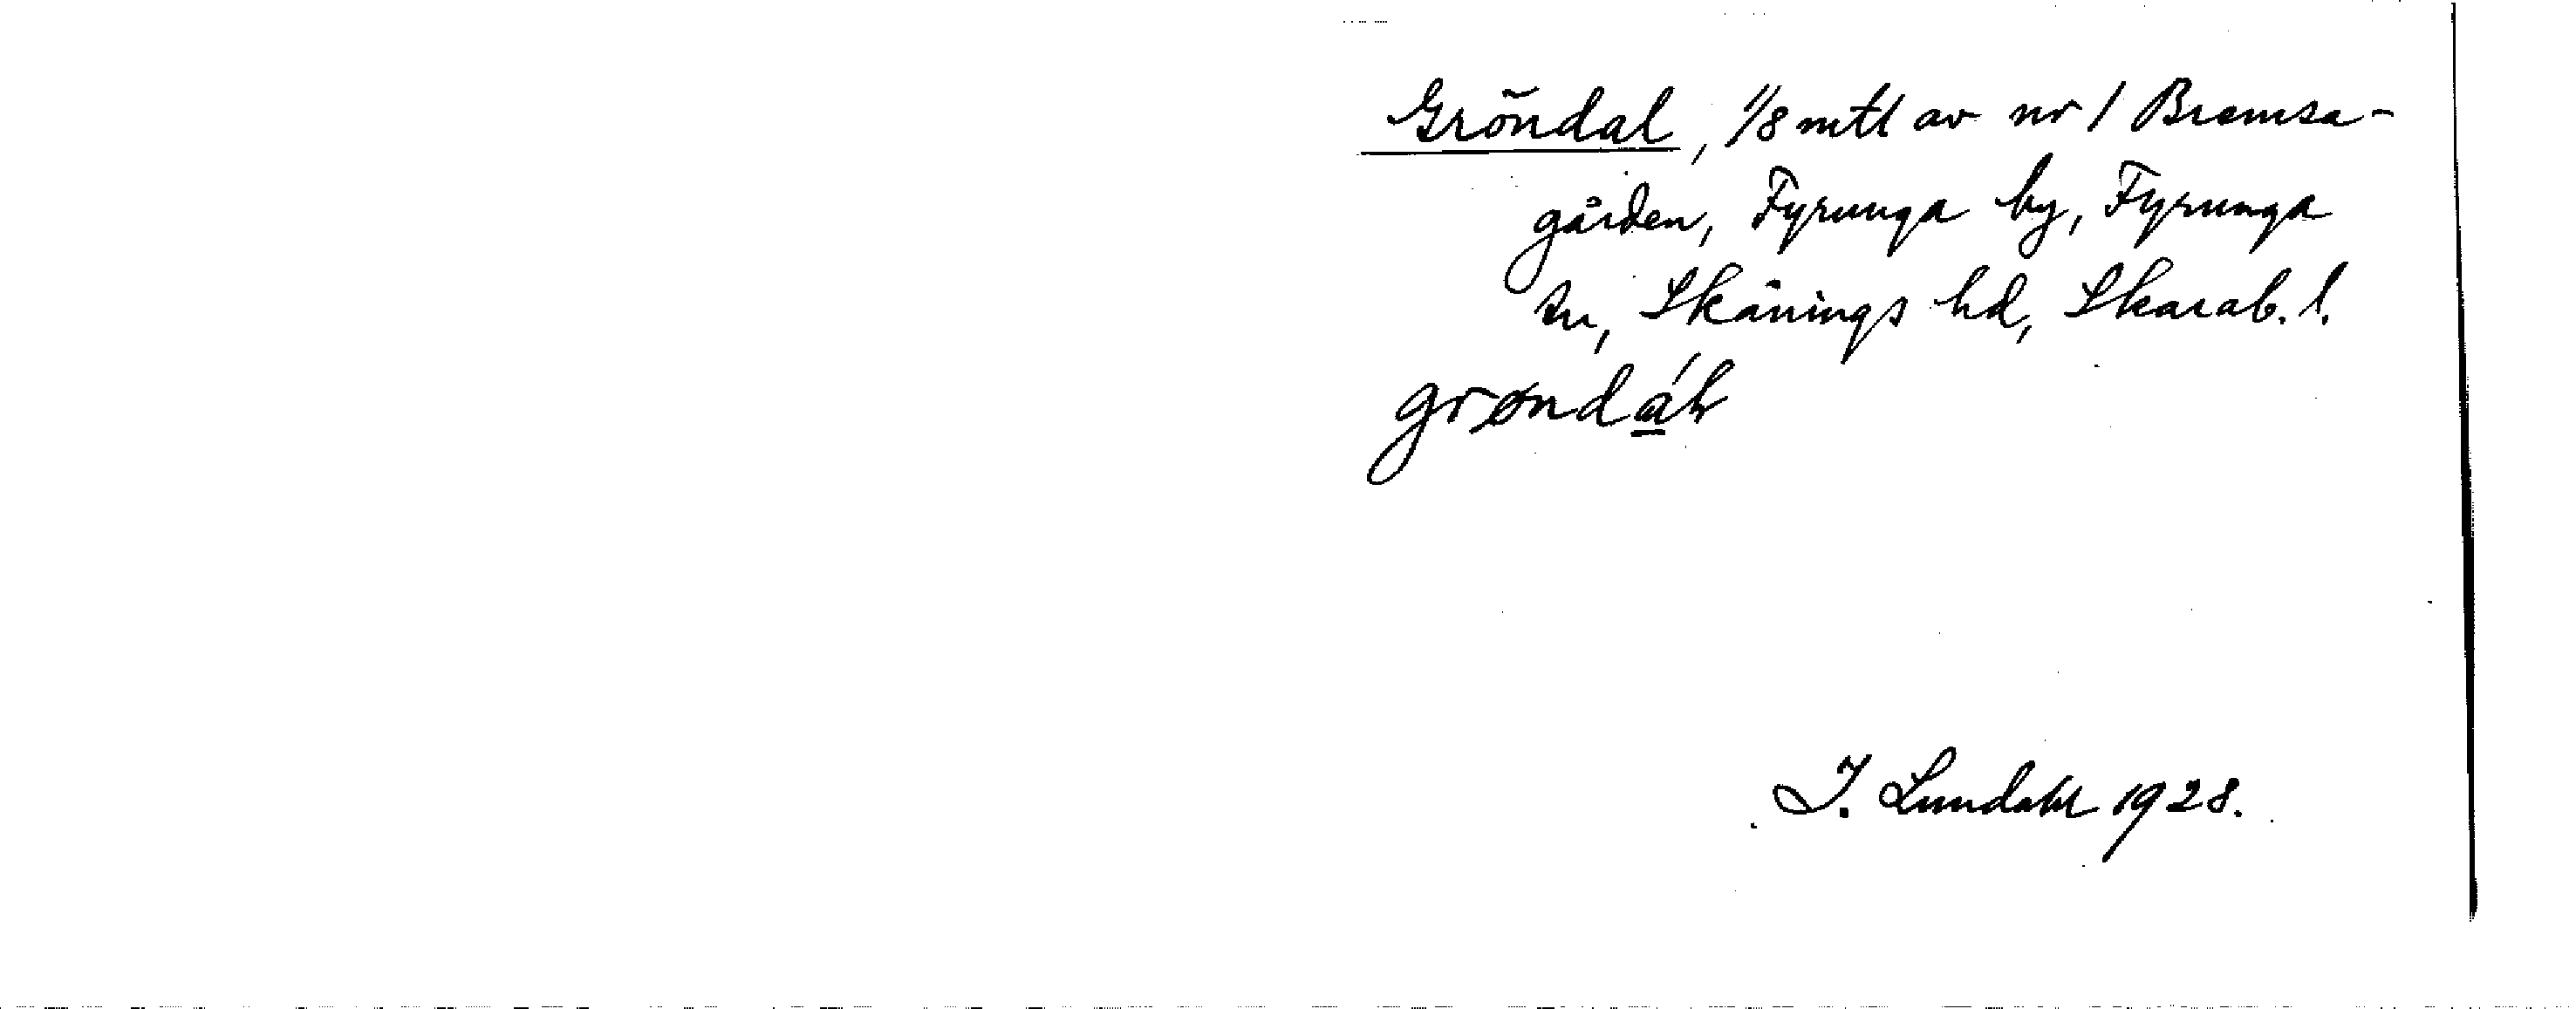 Gröndal, 1/8 mtl av nr 1 Bremsa-
gården, Fyrunga by, Fyrunga
sn, Skånings hd, Skarab. l.
I. Lundahl 1928.